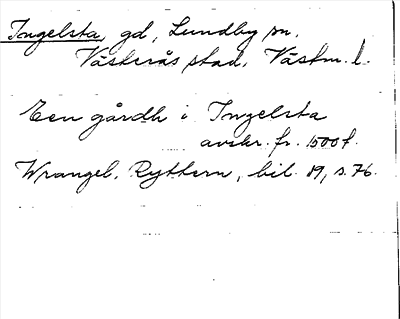 Ingelsta, gd, Lundby sn,
Västerås stad, Västm. l.
Een gårdh i Ingelsta
avskr. fr. 1500 t.
Wrangel, Ryttern, bil. 19, s. 76.